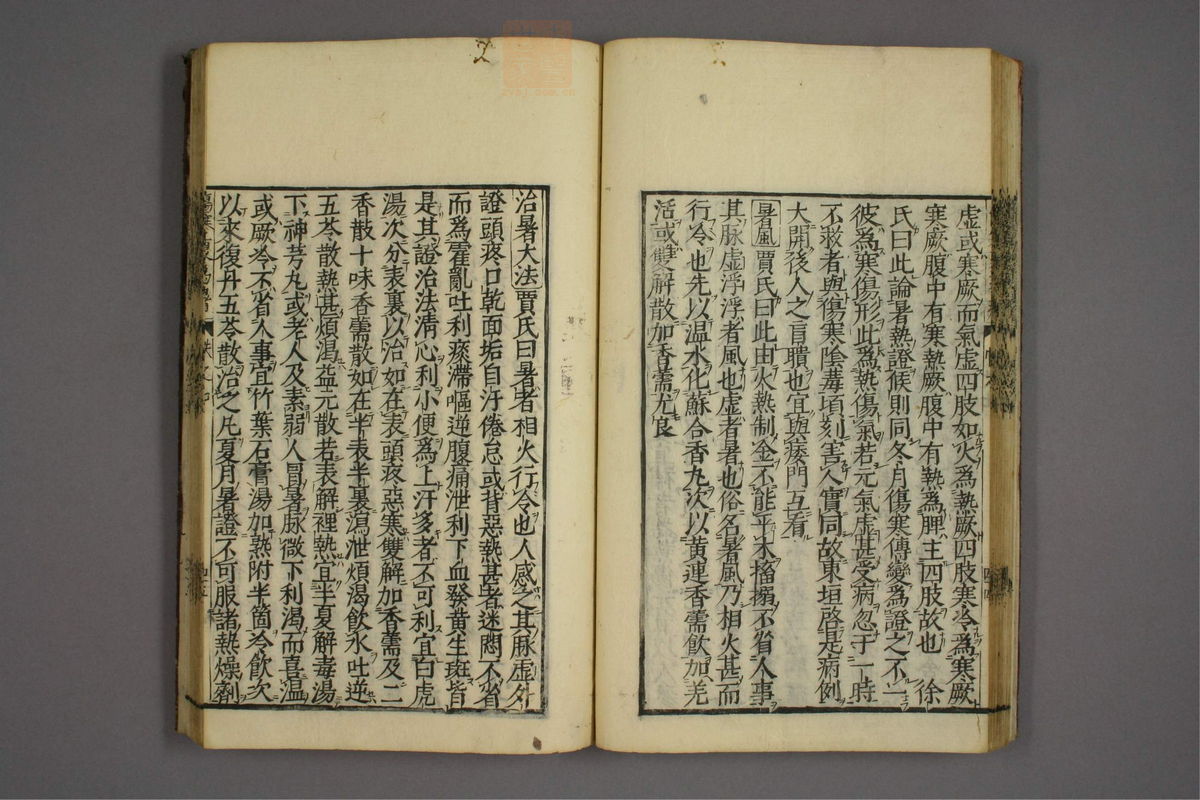 虚或寒厥而氣虚四肢如火爲熱厥四肢寒冷爲寒厥
寒厥腹中有寒熱厥腹中有熱爲脾主四肢故也　徐
氏曰此論暑熱證候則同冬月傷寒傳變爲證之不一
彼爲寒傷形此爲熱傷氣若元氣虚甚受病忽于一時
不救者與傷寒陰毒頃刻害人實同故東垣啓是病例
大開後人之盲聵也宜與痿門互看
暑風賈氏曰此由火熱制金不能平木搐搦不省人事
其脉虚浮浮者風也虚者暑也俗名暑風乃相火甚而
行令也先以温水化蘇合香丸次以黄連香薷飲加羌
活或雙解散加香薷尤良
治暑大法賈氏曰暑者相火行令也人感之其脉虚外
證頭疼口乾面垢自汗倦怠或背惡熱甚者迷悶不省
而爲霍亂吐利痰滯嘔逆腹痛泄利下血發黄生斑皆
是其證治法淸心利小便爲上汗多者不可利宜白虎
湯次分表裏以治如在表頭疼惡寒雙解加香薷及二
香散十味香薷散如在半表半裏瀉泄煩渇飲水吐逆
五苓散熱甚煩渇益元散若表解裡熱宜半夏解毒湯
下神芳丸或老人及素弱人冐暑脉微下利渇而喜温
或厥冷不省人事宜竹葉石膏湯加熟附半箇冷飲次
以來復丹五苓散治之凡夏月暑證不可服諸熱燥劑